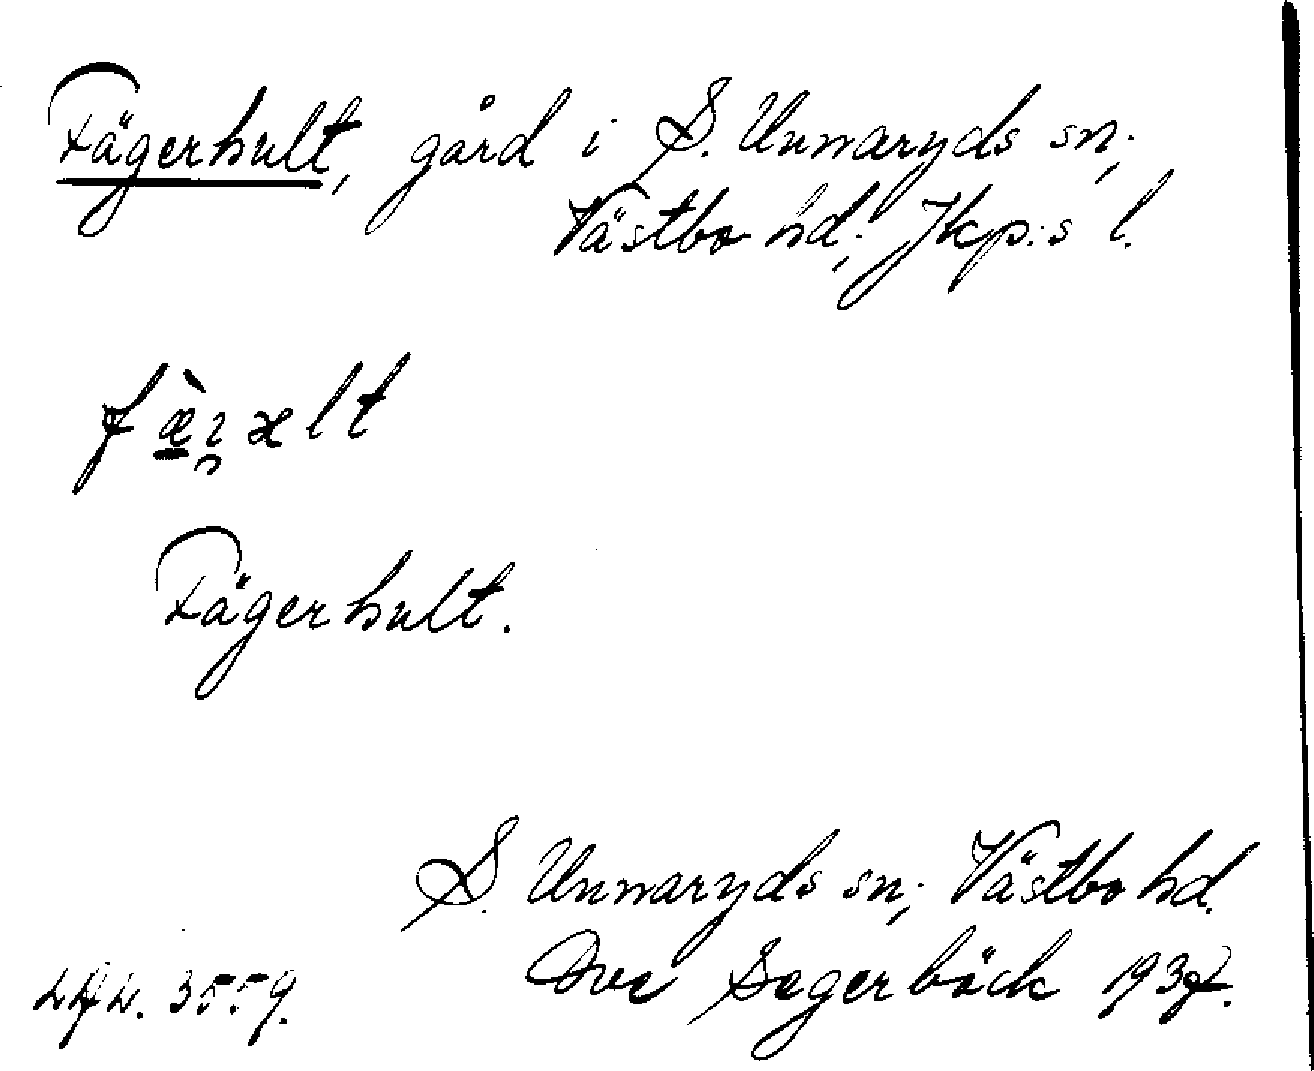 Fägerhult, gård i S. Unnaryds sn;
Västbo hd; Jkp:s l.
Fägerhult.
S. Unnaryds sn; Västbo hd.
Ove Segerbäck 1937.
3559.